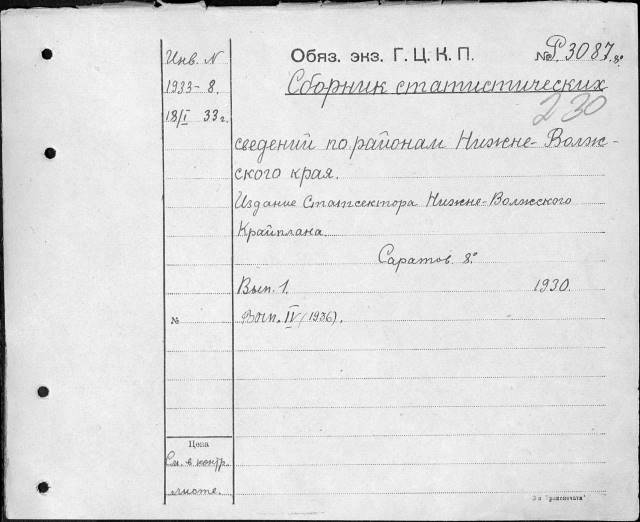 Инв. N
1933-8.
18/I 33 г.
Обяз. экз. Г. Ц. К. П.
№ Р3087. 8°
Сборник статистических
230
сведений по районам Нижне-Волж-
ского края.
Издание Статсектора Нижне-Волжского
Крайплана.
Саратов. 8°
Вып. 1. 1930.
№ Вып. IV (1936).
Цена
См. в контр.
листе.